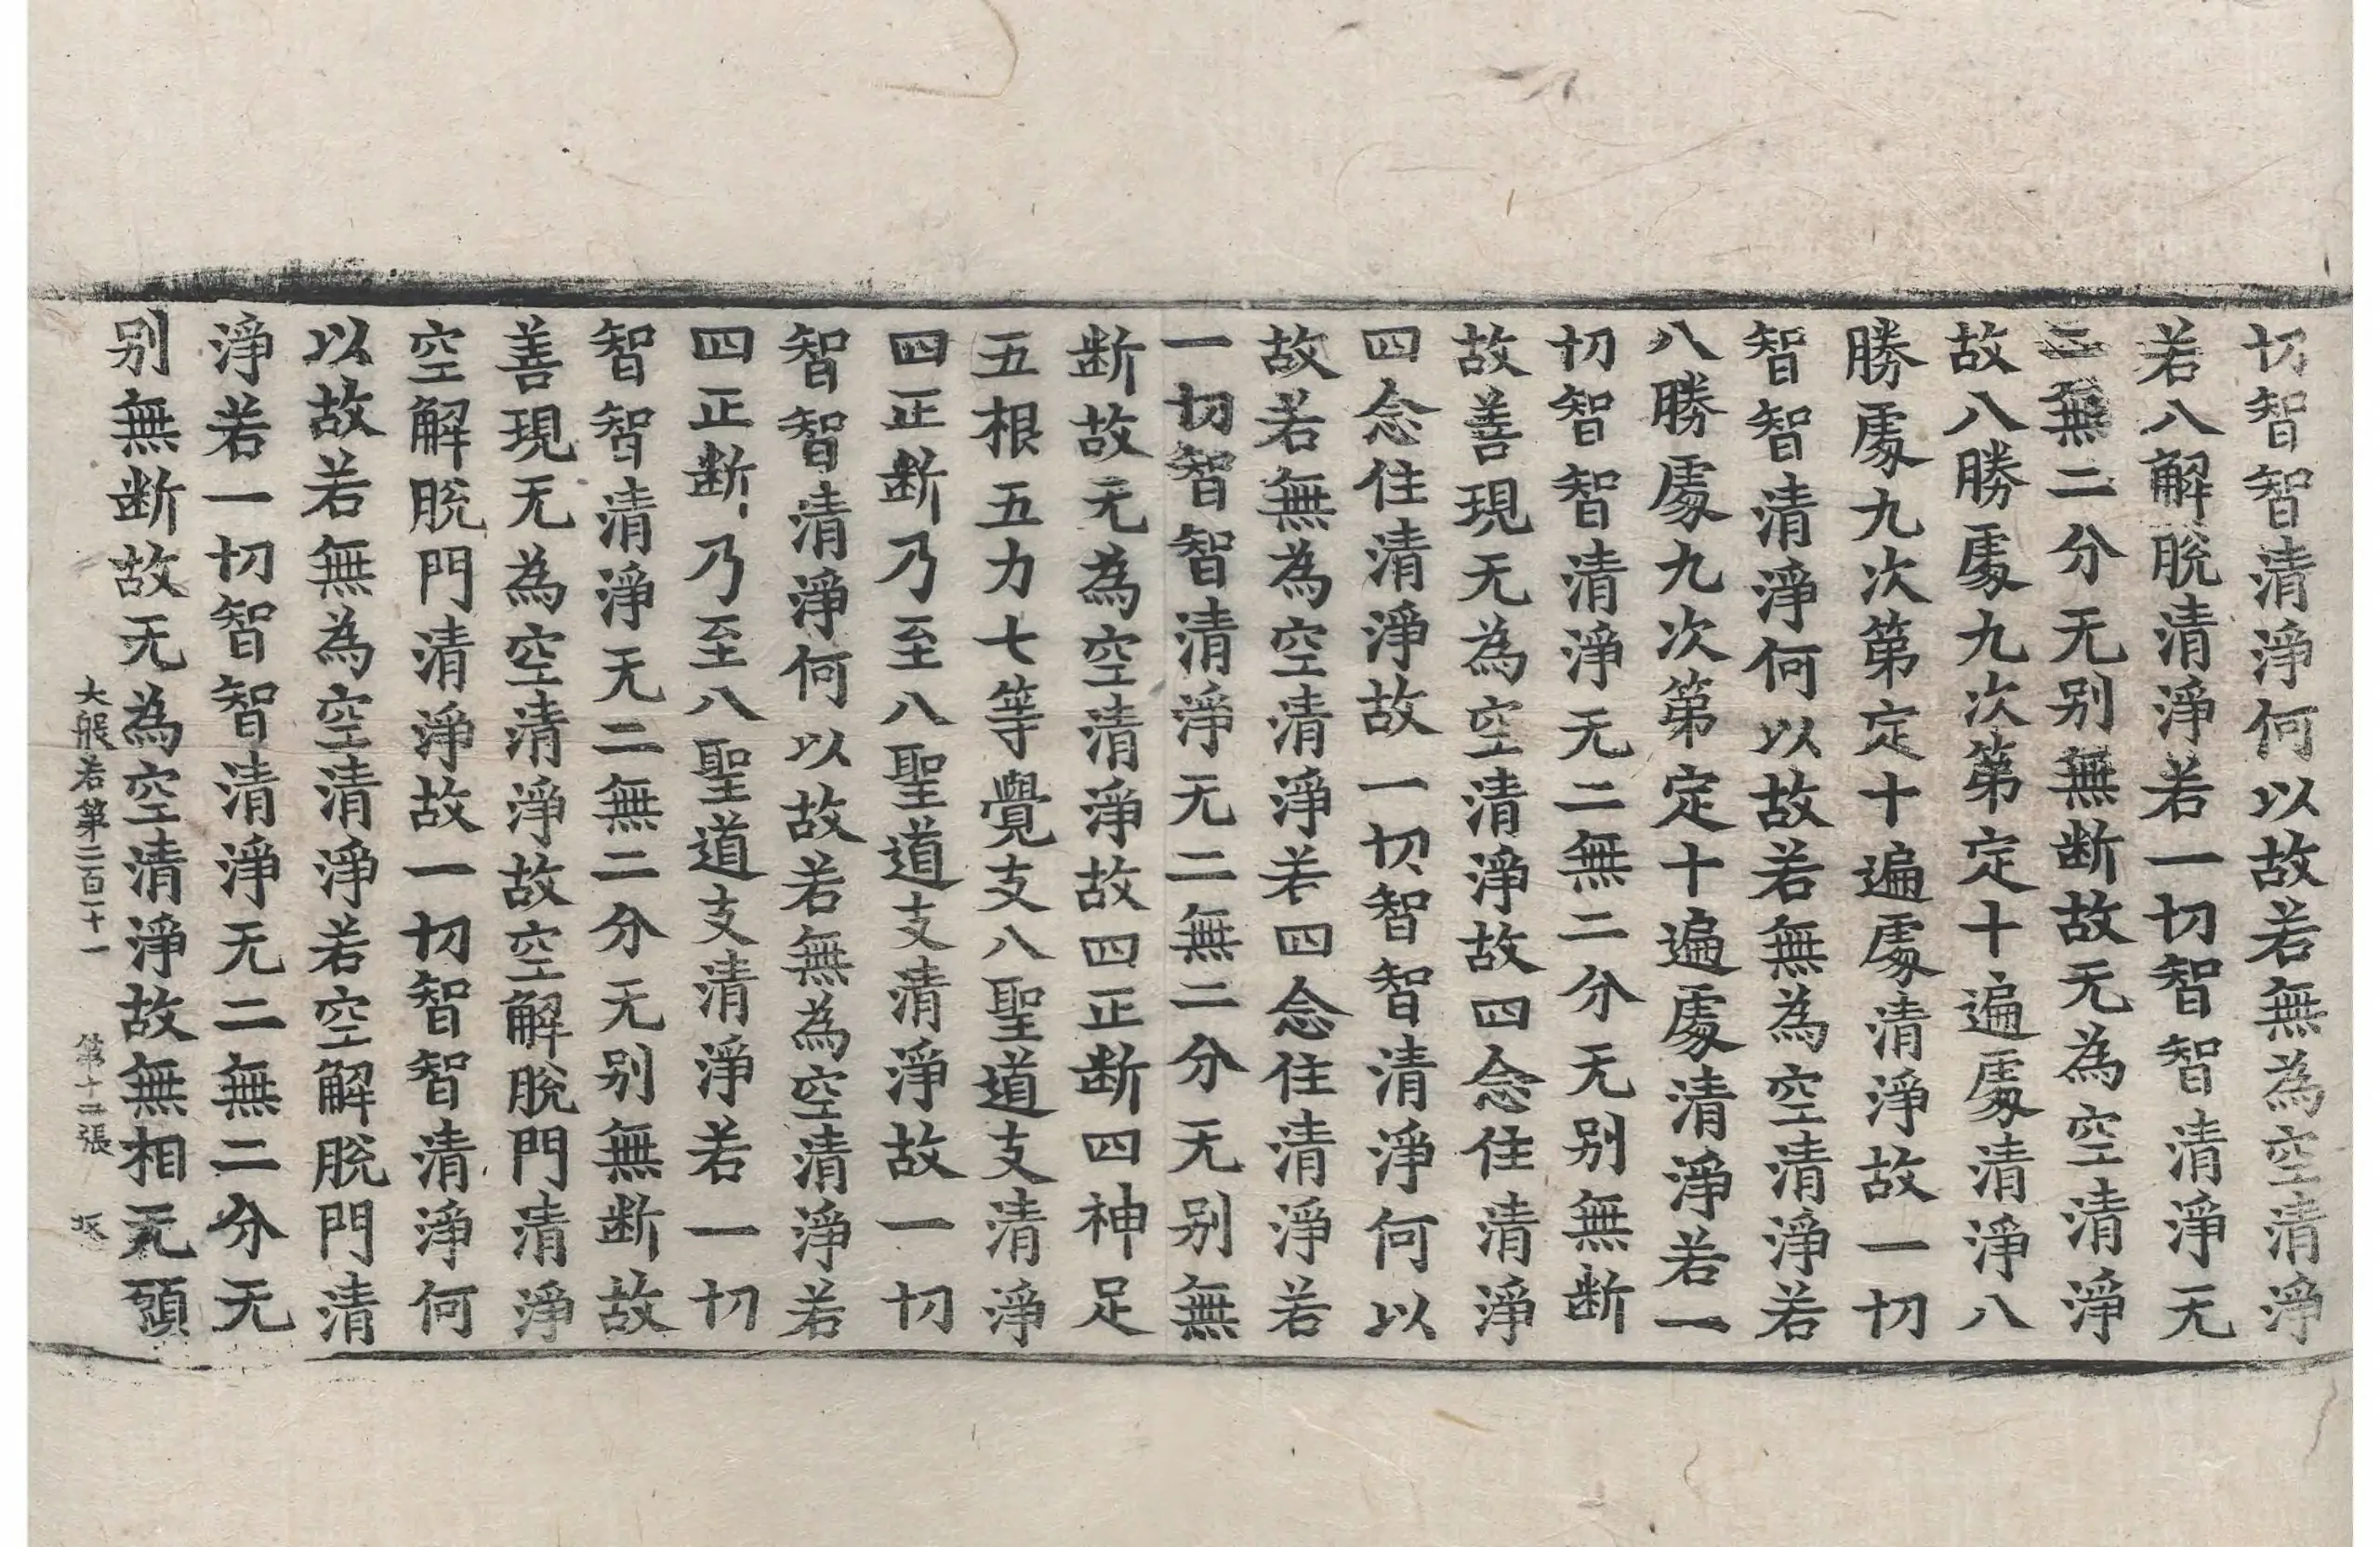 切智智清淨何以故若無為空清淨
若八解脫清淨若一切智智清淨无
二無二分无别無断故无為空清淨
故八勝處九次第定十遍處清淨八
勝處九次第定十遍處清淨故一切
智智清淨何以故若無為空清淨若
八勝處九次第定十遍處清淨若一
切智智清淨无二無二分无别無断
故善現无為空清淨故四念住清淨
四念住清淨故一切智智清淨何以
故若無為空清淨若四念住清淨若
一切智智清淨无二無二分无别無
断故无為空清淨故四正断四神足
五根五力七等覺支八聖道支清淨
四正断乃至八聖道支清淨故一切
智智清淨何以故若無為空清淨若
四正断乃至八聖道支清淨若一切
智智清淨无二無二分无别無断故
善現无為空清淨故空解脫門清淨
空解脫門清淨故一切智智清淨何
以故若無為空清淨若空解脫門清
淨若一切智智清淨无二無二分无
别無断故无為空清淨故無相无願
大般若第二百二十一　第十二張